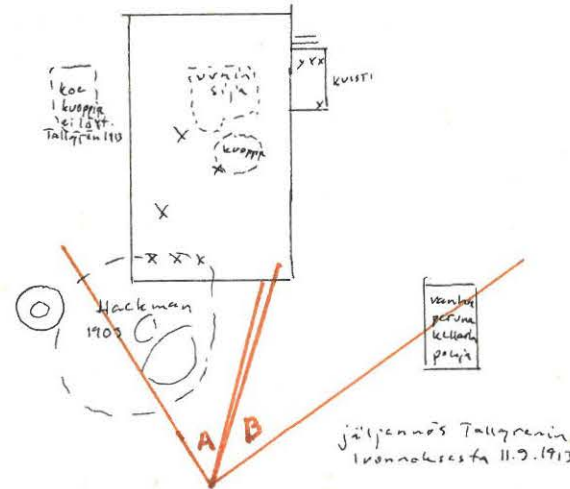 koe
kuoppia
ei löyt.
Tallgren 1913
uunin
sija
kuoppa
x
x
x x x
x
KUISTI
Hackman
1903
A
B
vanha
peruna
kellarin
pohja
jäljennös Tallgrenin
luonnoksesta 11.9.1913